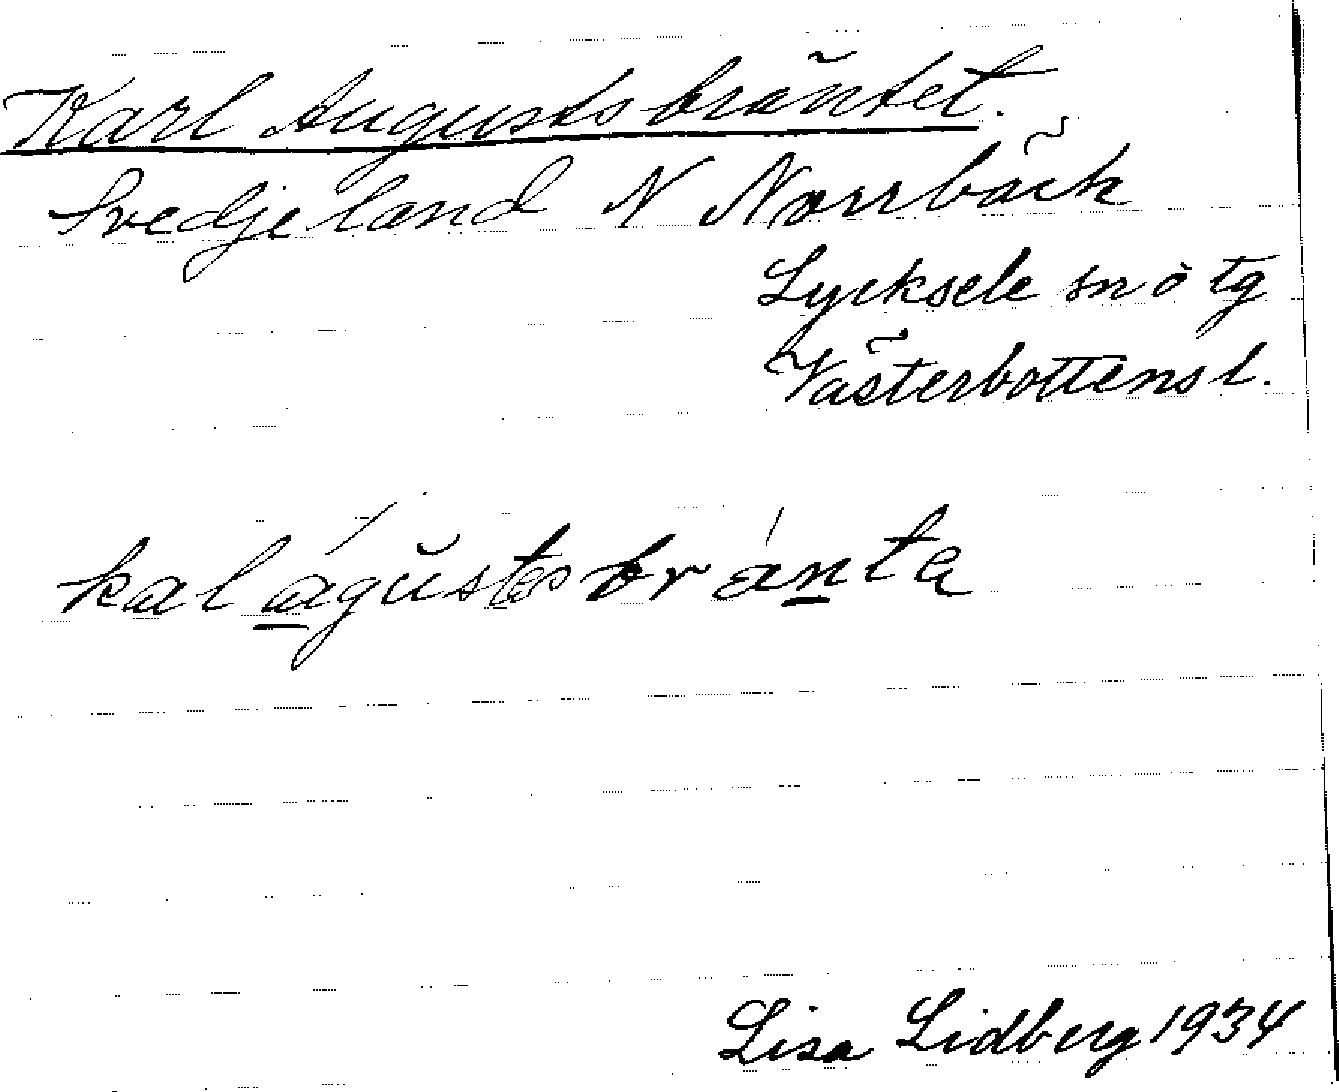 Karl Augustsbräntet.
Svedjeland N Norrbäck
Lycksele sn o tg
Västerbottens l.
Lisa Lidberg 1934